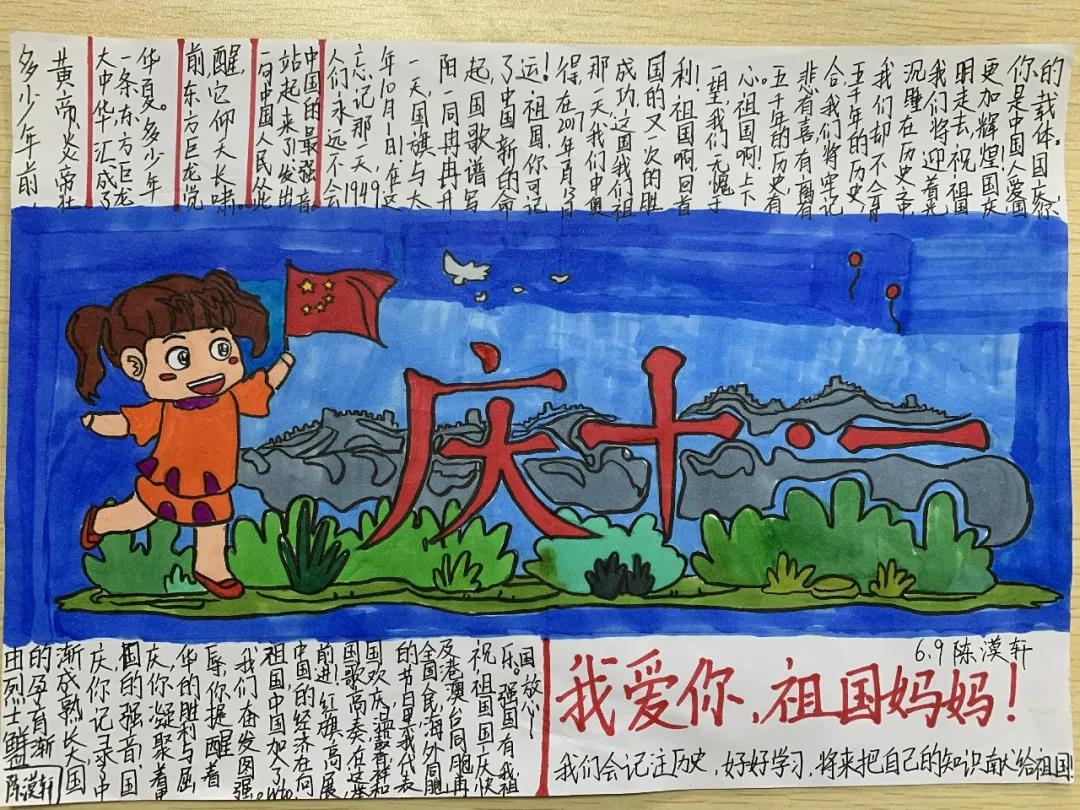 多少年前,
黄帝炎帝壮
大中华,汇成了
一条东方巨龙
华夏。多少年
前,东方巨龙觉
醒,它仰天长啸。
一句中国人民从此
站起来了发出
中国的最强音。
人们永远不会
忘记那一天,1949
年10月1日,在这
一天,国旗与太
阳一同冉冉升
起,国歌谱写
了中国新的命
运!祖国,你可记
得,在
那一天我们申奥
成功,这国我们祖
国的又一次的胜
利!祖国啊,回首
一望,我们无愧于
心。祖国啊!上下
五千年的历史,有
悲有喜有离有
合,我们将牢记
五千年的历史,
我们却不会再
沉睡在历史中,
我们将迎着光
明走去,祝祖国
更加辉煌!国庆
你是中国人爱国
的载体。国庆,你
庆十·一
由烈士鲜血
的孕育渐
渐成熟长大国
庆你记录中
国的强音!国
庆你凝聚着中
华的胜利与屈
辱,你提醒着
我们奋发图强。
祖国,中国加入了WTO,
中国的经济在向
前进,红旗高展,
国歌高奏在这举
国欢庆,温馨祥和
的节日里,我代表
全国人民,海外同胞
及港澳台同胞,再
祝祖国国庆快
乐。强国有我,
国放心!
陈漠轩
6.9 陈漠轩
我爱你,祖国妈妈!
我们会记注历史,好好学习,将来把自己的知识献给祖国!